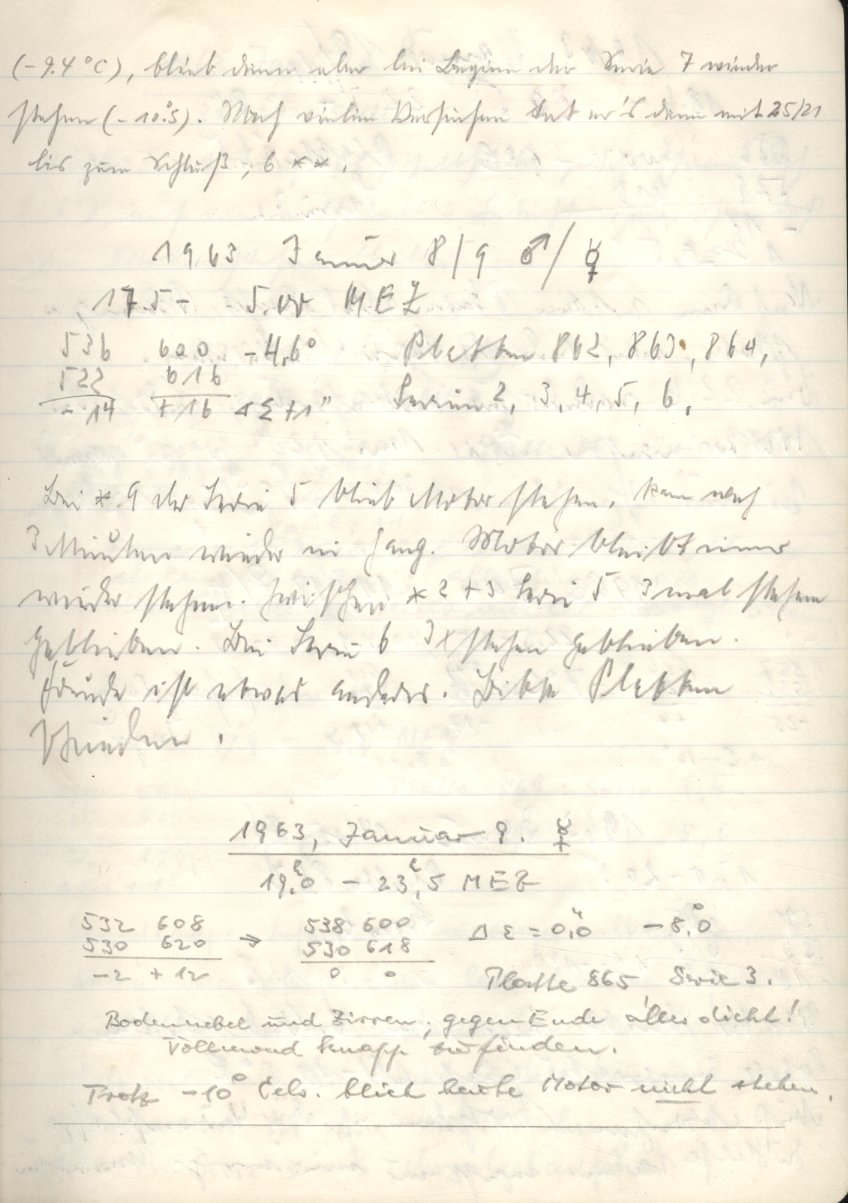 (-9.4°C), blieb dann aber bei Beginn der Serie 7 wieder
stehen (-10°.5). Nach vielen Versuchen tat er's dann mit 25/21
bis zum Schluß, 6 **.
1963 Januar 8/9 ♂/☿
17.5 - 5.00 MEZ
536 600 -4,6° Platten 862, 863, 864,
522 616 Serien 2, 3, 4, 5, 6.
-14 +16 Δε +1"
Bei * 9 der Serie 5 blieb Motor stehen, kam nach
3 Minuten wieder in Gang. Motor bleibt immer
wieder stehen. Zwischen * 2 + 3 Serie 5 3 mal stehen
geblieben. Bei Serie 6 3x stehen geblieben.
ist etwas anderes. Bitte Platten
1963, Januar 9. ☿
19,0 - 23,5 MEZ
532 608 538 600 Δ ε = 0",0 -8°,0
530 620 → 530 618
-2 +12 0 0
Platte 865 Serie 3.
Bodennebel und Zirren, gegen Ende alles dicht!
Vollmond knapp zu finden.
Trotz -10° Cels. blieb heute Motor nicht stehen.